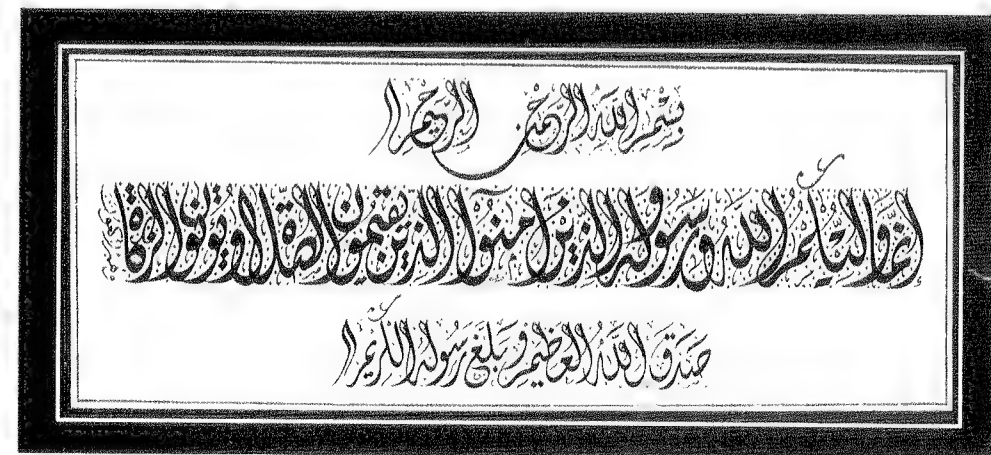 بِسْمِ اللهِ الرَّحْمٰنِ الرَّحِيمِ
إنما وليكم الله ورسوله والذين آمنوا الذين يقيمون الصلاة ويؤتون الزكاة
صَدَقَ اللهُ العَظِيمُ وَبَلَّغَ رَسُولُهُ الكَرِيمُ